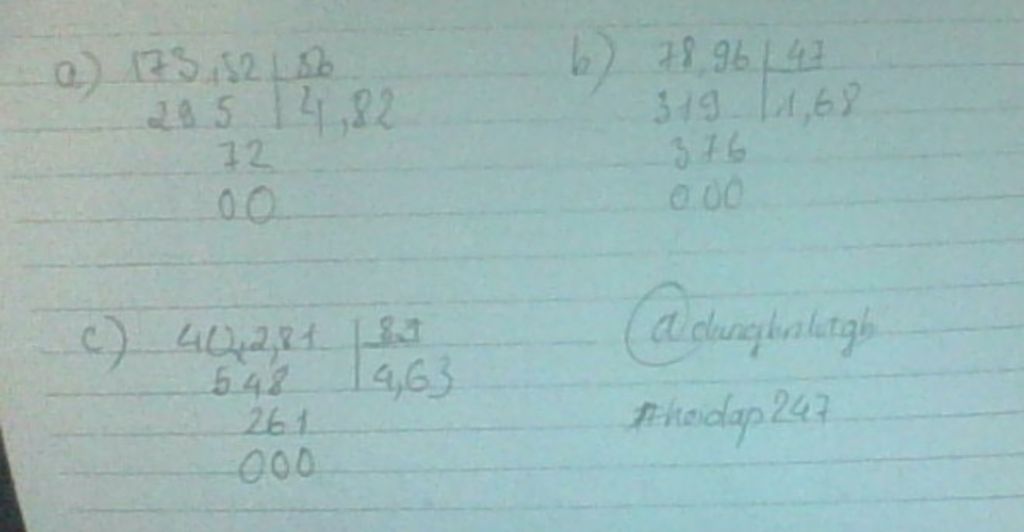 a) 173,52 | 36
295 | 4,82
72
00
b) 78,96 | 47
319 | 1,68
376
000
c) 402,81 | 87
548 | 4,63
261
000
#hoidap247